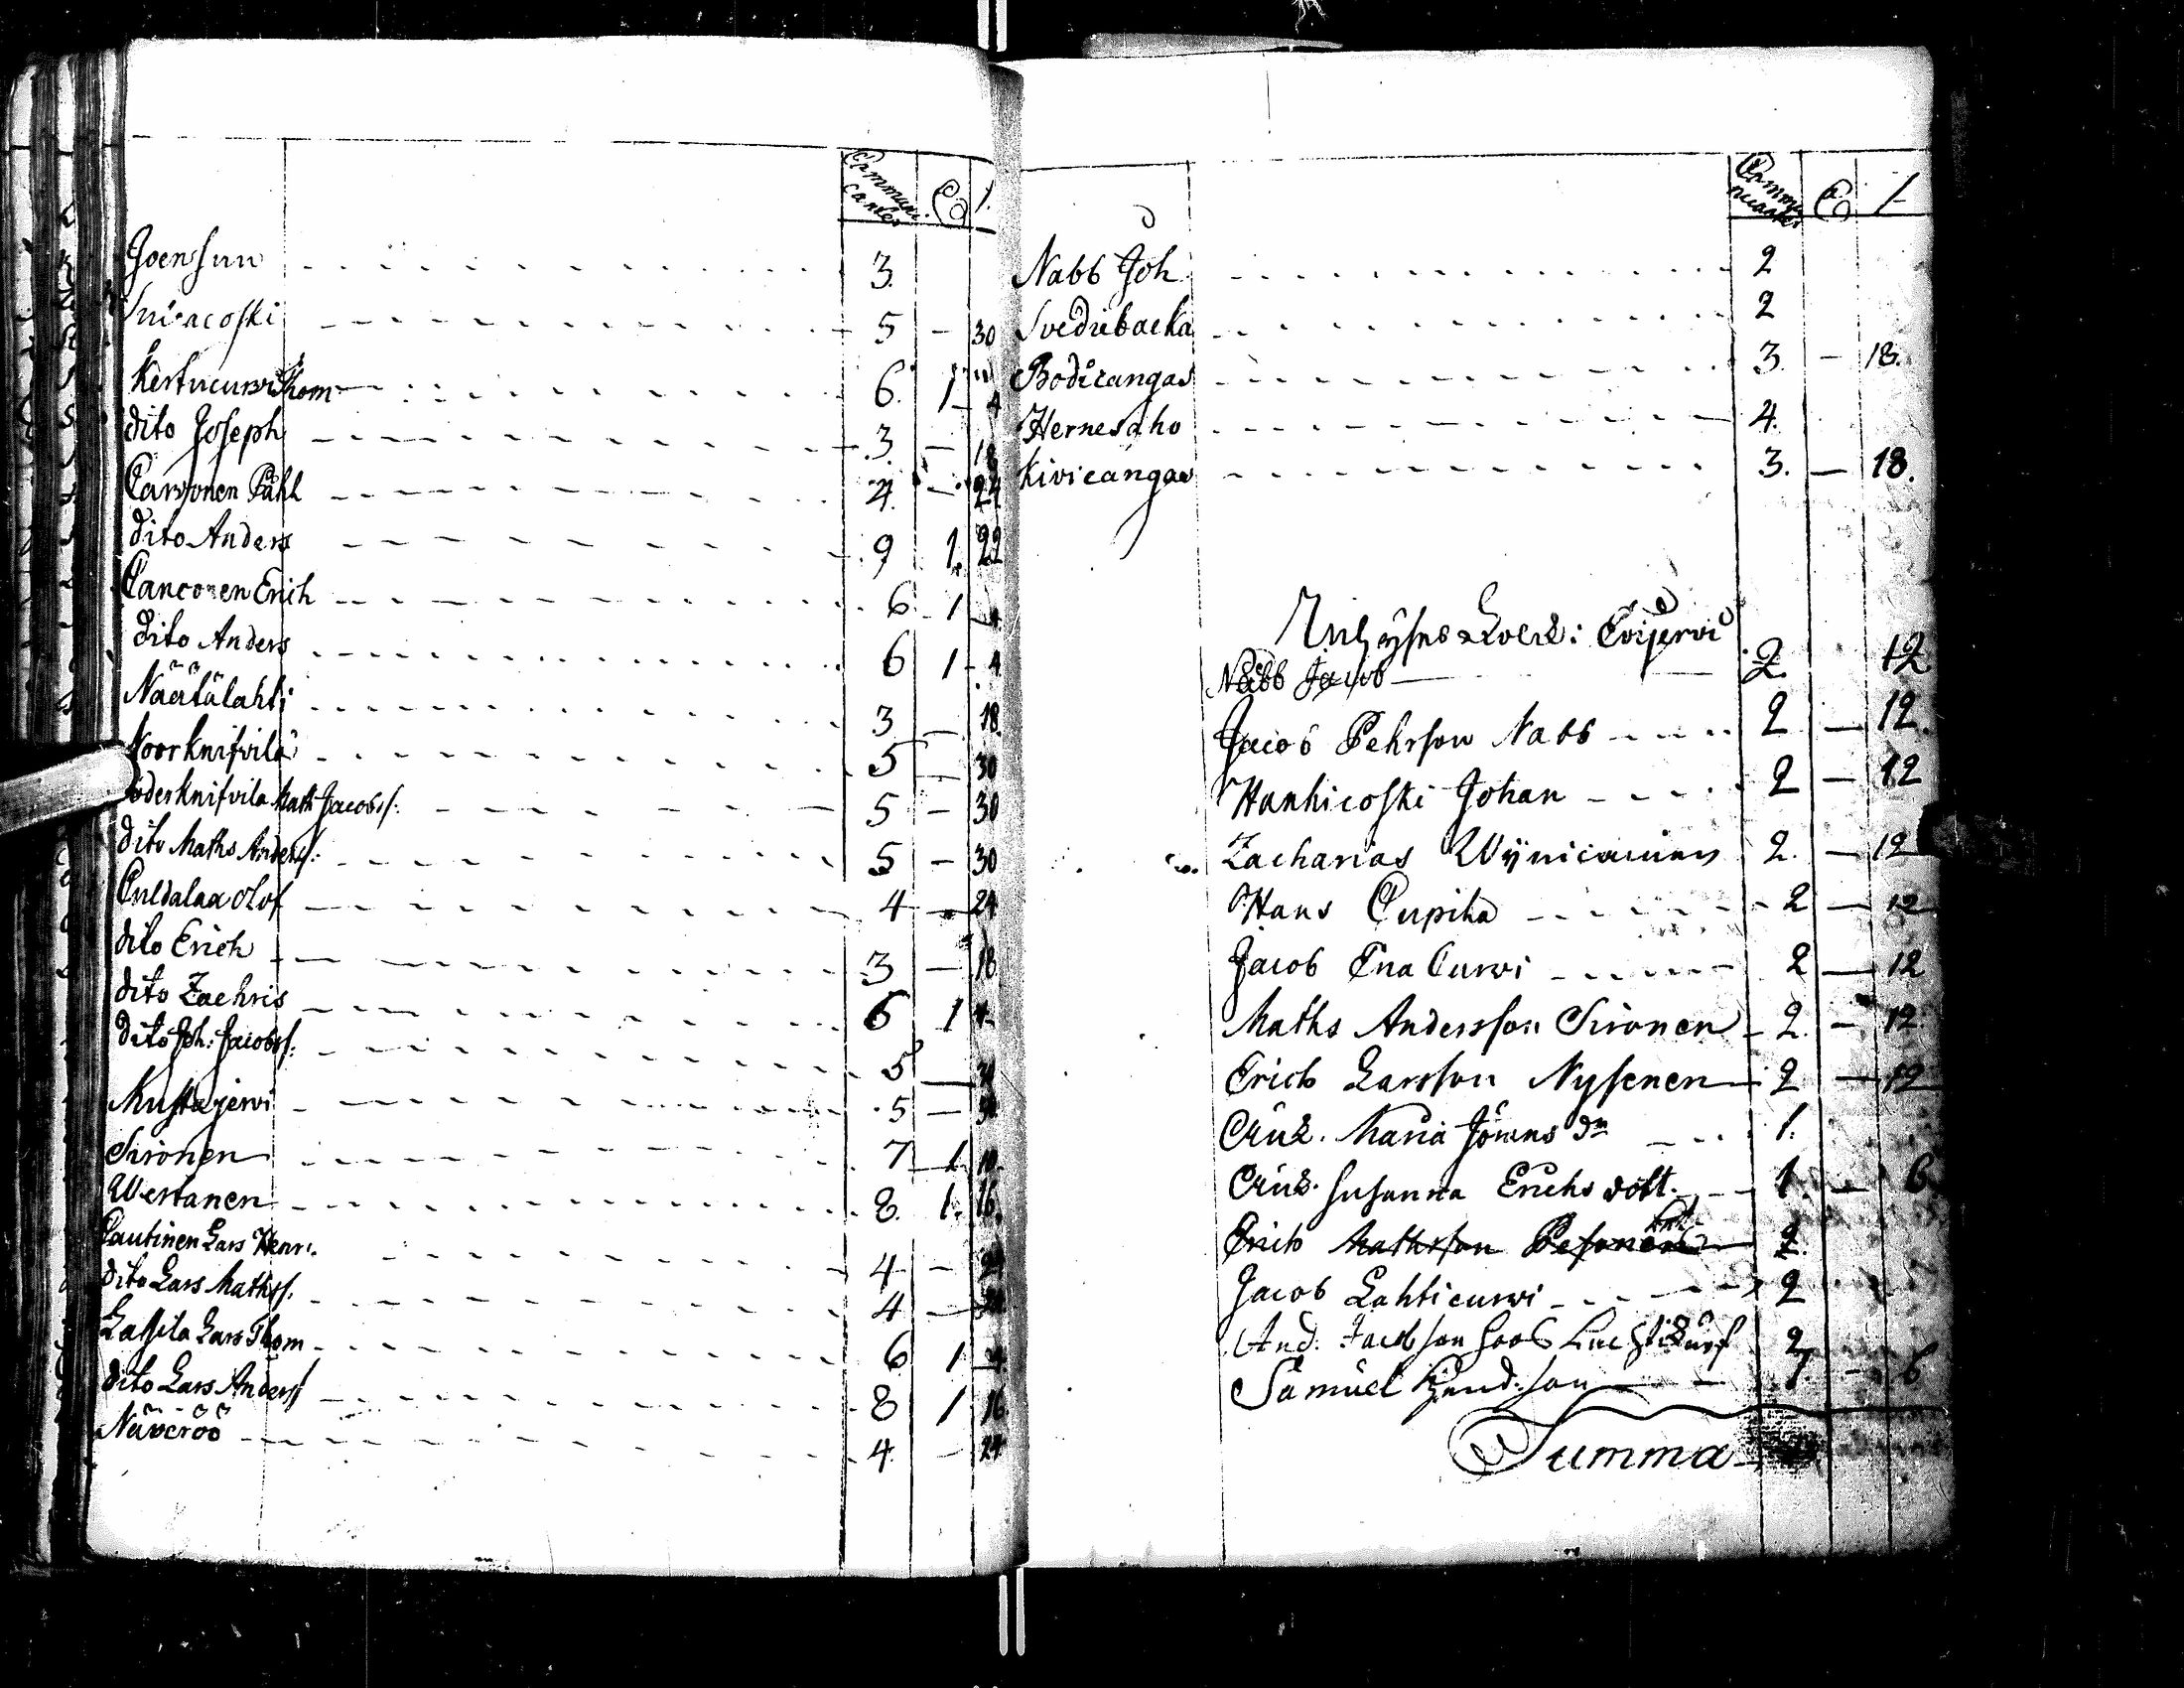 Communicantes
Joensuu 3.
Sniracoski 5 — 30
Kertucurwi Thom 6. 1 — 4
dito Joseph 3. — 18
Carvonen Påhl 4. — 24
dito Anders 9 1. 22
Canconen Erich 6. 1 4
dito Anders 6 1 — 4
Näätälahti 3 — 18
Norrknifvilä 5 — 30
Söderknifvila Math Jacobss: 5 — 30
dito Maths Anderss: 5 — 30
Culdalax Olof 4 — 24
dito Erich 3 — 18
dito Zachris 6 1 4
dito Joh: Jacobss: 5 — 30
Mustajerwi 5 — 30
Sironen 7 1 10
Wertanen 8. 1. 16.
Cautinen Lars Henr: 4 — 24
dito Lars Mathss. 4 — 24
Lassila Lars Thom 6 1 4
dito Lars Anderss 8 1 16
Näveröö 4. — 24
Communicantes
Nabb Joh 2
Svedjebacka 2
Bodicangas 3. — 18.
Hernesaho 4.
Kivicangas 3. — 18.
Evijerwi
Nabb Jacob 2. 12
Jacob Pehrson Nabb 2 — 12.
Hanhicoski Johan 2 — 12
Zacharias 2. — 12
Hans Cupiha 2 — 12
Jacob 2 — 12
Maths Andersson Sironen 2. — 12
Erich Larsson Nysenen 2 — 12
Enk. Maria Jöransdr 1.
Enk. Susanna Erichsdott. 1. — 6
Erich Mathsson Pesonen 2.
Jacob Lahticurwi 2
And. Jacobson 2
Samuel Hend:son 1 — 6
Summa